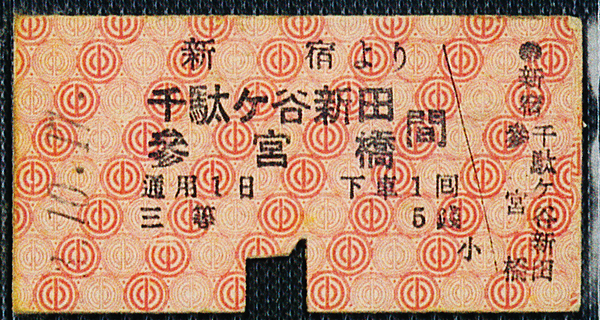 新宿より
千駄ケ谷新田
参宮橋
間
通用1日 下車1回
三等 5銭
小
新宿
千駄ケ谷新田
参宮橋